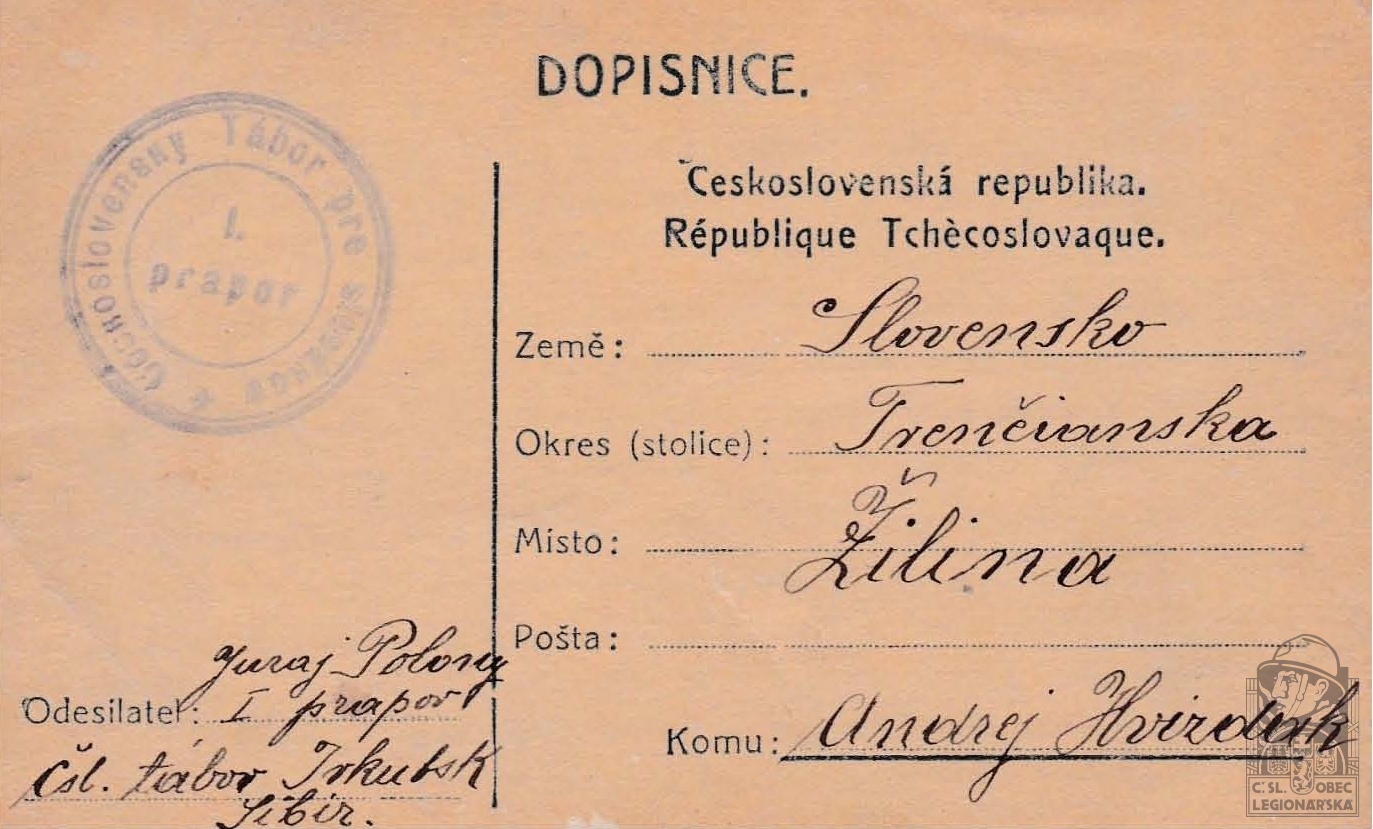 DOPISNICE.
Československý Tábor pre Slovákov
I.
prapor
Československá republika.
République Tchècoslovaque.
Země: Slovensko
Okres (stolice): Trenčianska
Místo: Žilina
Pošta:
Komu: Andrej
Juraj Polony
Odesilatel: I prapor
Čsl. tábor Irkutsk
Sibir.
Č.SL. OBEC
LEGIONÁŘSKÁ